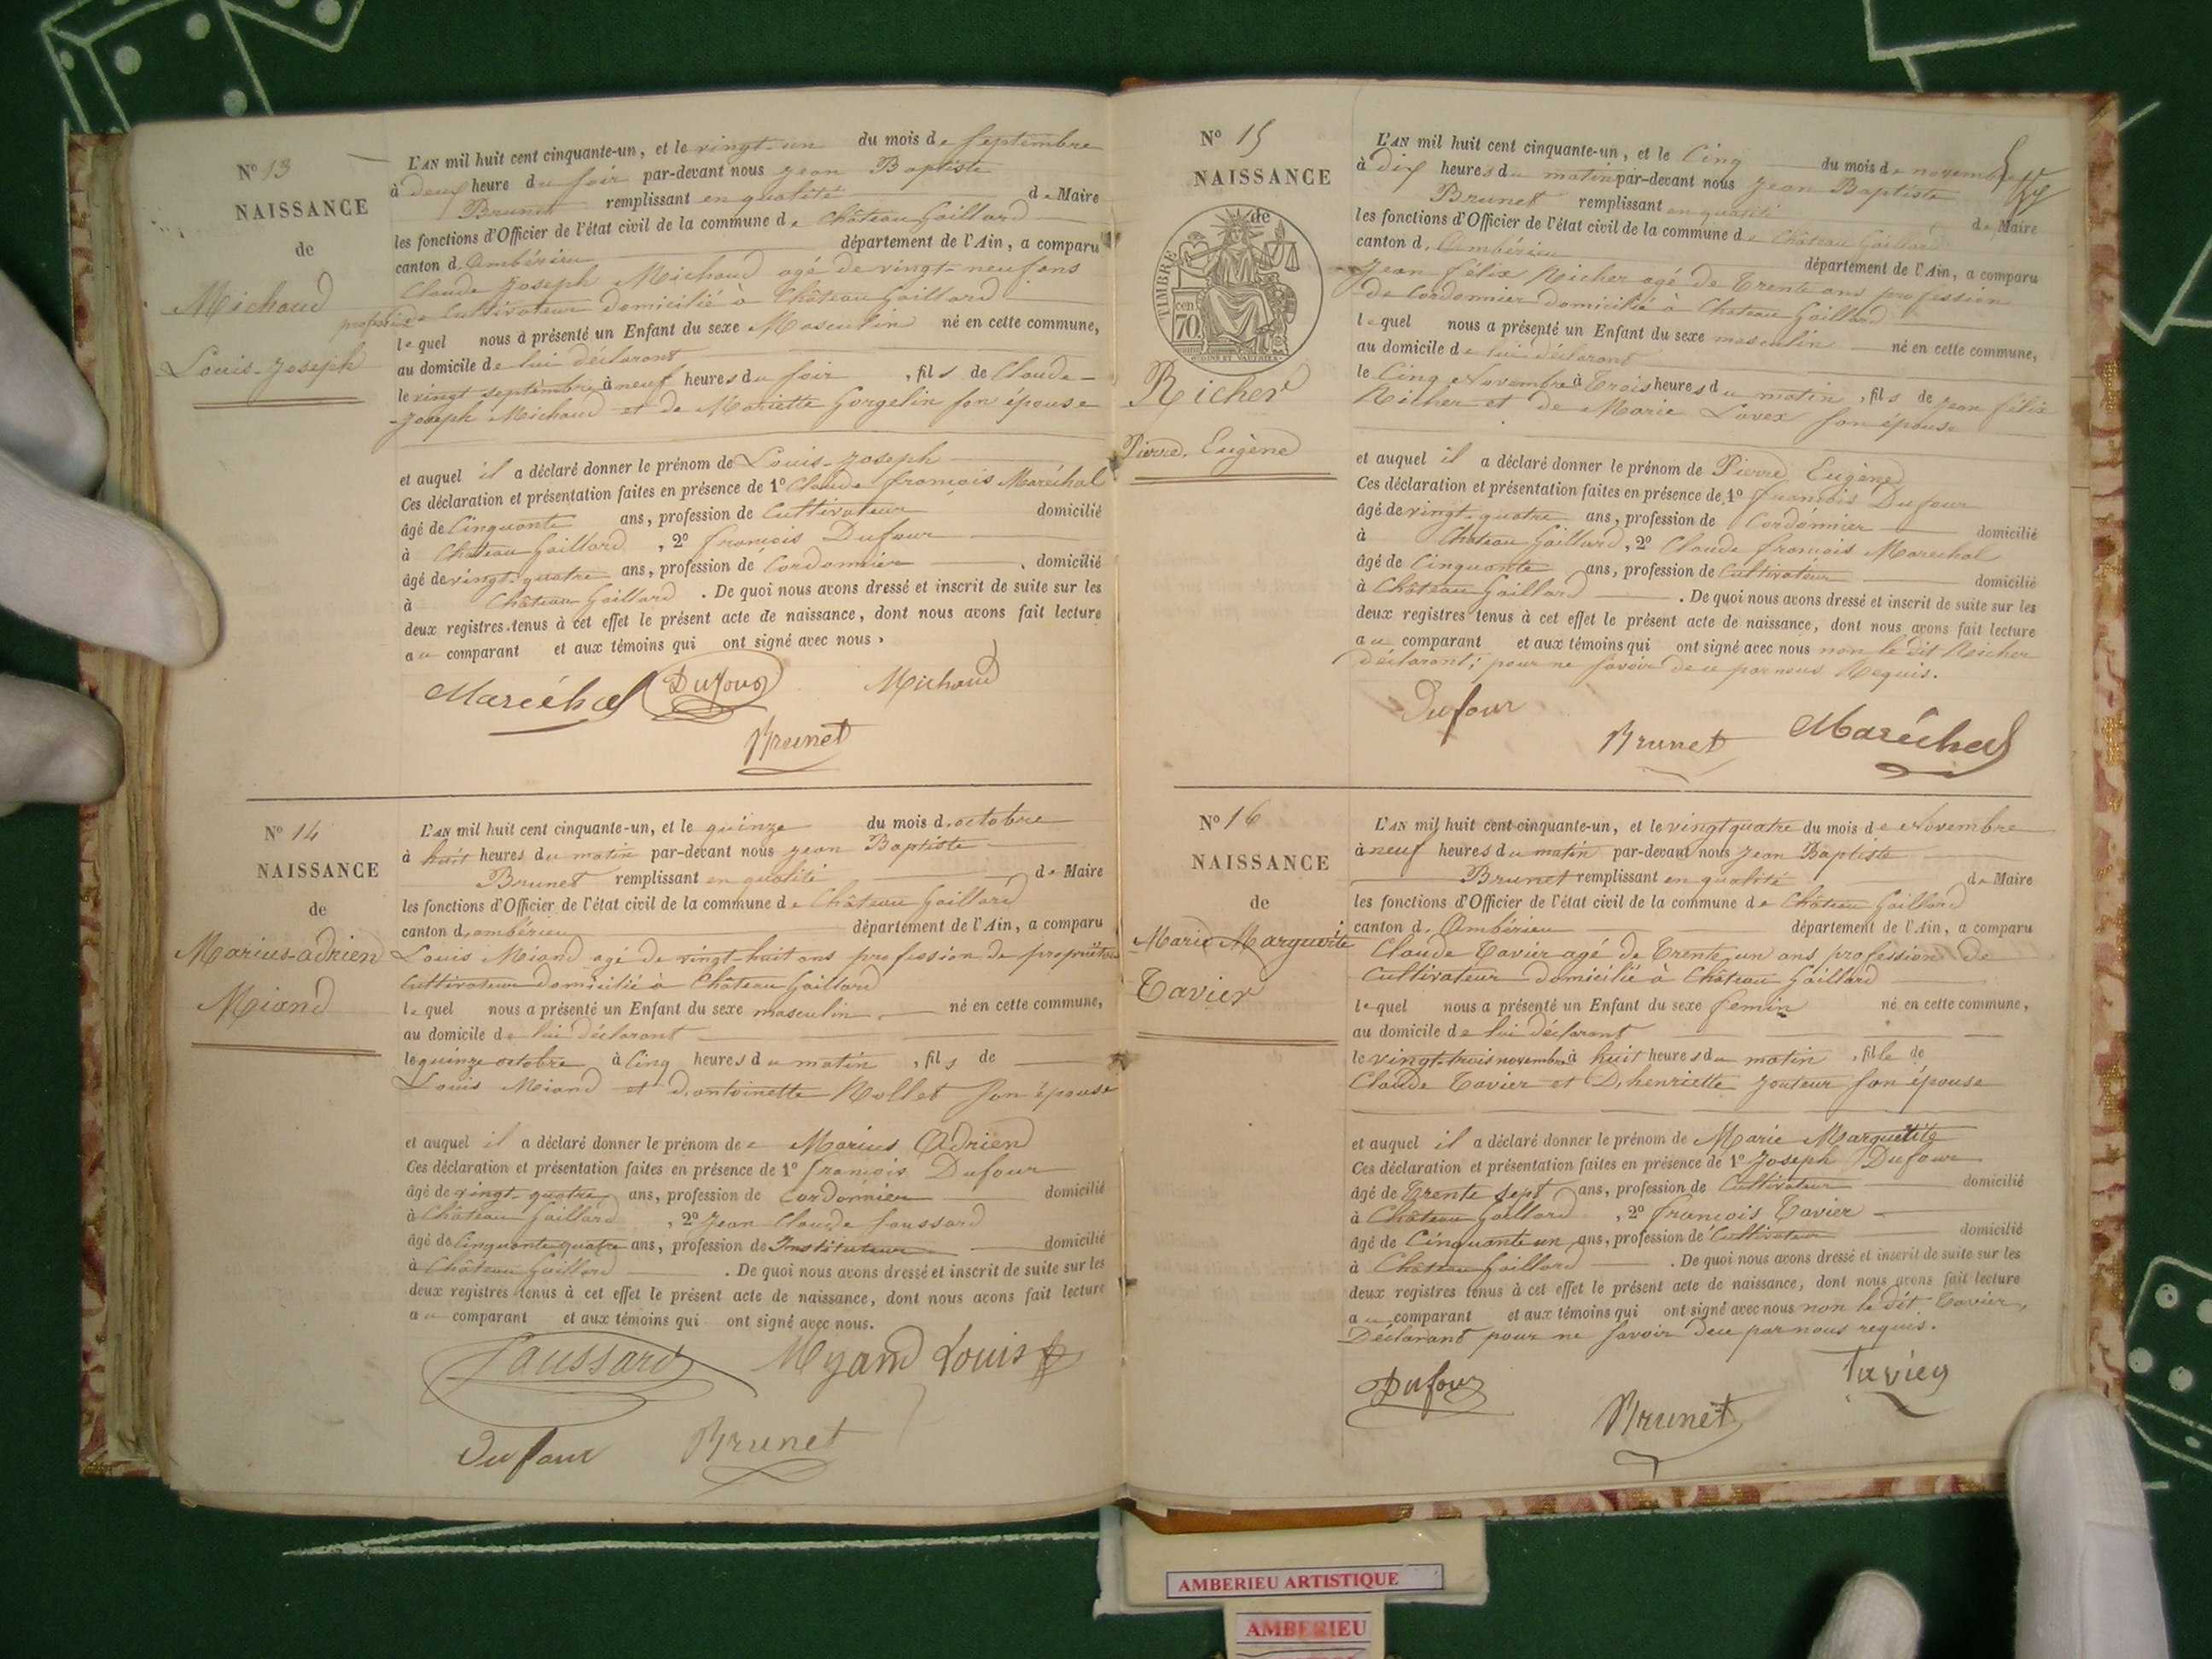 N° 13
NAISSANCE
de
Michaud
Louis-Joseph
L'AN mil huit cent cinquante-un, et le vingt-un du mois de Septembre
à deux heure du soir par-devant nous Jean Baptiste
Brunet remplissant en qualité de Maire
les fonctions d'Officier de l'état civil de la commune de Château Gaillard
canton d'Ambérieu département de l'Ain, a comparu
Claude Joseph Michaud agé de vingt-neuf ans
profession de Cultivateur domicilié à Château Gaillard
lequel nous a présenté un Enfant du sexe Masculin né en cette commune,
au domicile de lui déclarant
le vingt septembre à neuf heures du soir, fils de Claude-
Joseph Michaud et de Mariette Gorgelin son épouse
et auquel il a déclaré donner le prénom de Louis-Joseph
Ces déclaration et présentation faites en présence de 1° Claude françois Maréchal
âgé de Cinquante ans, profession de Cultivateur domicilié
à Château Gaillard, 2° françois Dufour
âgé de vingt-quatre ans, profession de Cordonnier, domicilié
à Château Gaillard. De quoi nous avons dressé et inscrit de suite sur les
deux registres tenus à cet effet le présent acte de naissance, dont nous avons fait lecture
au comparant et aux témoins qui ont signé avec nous.
Maréchal Dufour Michaud
Brunet
N° 14
NAISSANCE
de
Marius-adrien
Miand
L'AN mil huit cent cinquante-un, et le quinze du mois d'octobre
à huit heures du matin par-devant nous Jean Baptiste
Brunet remplissant en qualité de Maire
les fonctions d'Officier de l'état civil de la commune de Château Gaillard
canton d'ambérieu département de l'Ain, a comparu
Louis Miand agé de vingt-huit ans profession de propriétaire
Cultivateur domicilié à Château Gaillard
lequel nous a présenté un Enfant du sexe masculin né en cette commune,
au domicile de lui déclarant
le quinze octobre à Cinq heures du matin, fils de
Louis Miand et d'antoinette Rollet son épouse
et auquel il a déclaré donner le prénom de Marius Adrien
Ces déclaration et présentation faites en présence de 1° françois Dufour
âgé de vingt-quatre ans, profession de Cordonnier domicilié
à Château Gaillard, 2° Jean Claude faussard
âgé de Cinquante quatre ans, profession de Instituteur domicilié
à Château Gaillard. De quoi nous avons dressé et inscrit de suite sur les
deux registres tenus à cet effet le présent acte de naissance, dont nous avons fait lecture
au comparant et aux témoins qui ont signé avec nous.
Faussard Myand Louis
Dufour Brunet
N° 15
NAISSANCE
de
TIMBRE
cen
70
Richer
Pierre, Eugène
L'AN mil huit cent cinquante-un, et le Cinq du mois de novembre
à dix heures du matin par-devant nous Jean Baptiste
Brunet remplissant en qualité de Maire
les fonctions d'Officier de l'état civil de la commune de Château Gaillard
canton d'Ambérieu département de l'Ain, a comparu
Jean félix Richer agé de Trente ans profession
de Cordonnier domicilié à Château Gaillard
lequel nous a présenté un Enfant du sexe masculin né en cette commune,
au domicile de lui déclarant
le Cinq Novembre à Trois heures du matin, fils de Jean félix
Richer et de Marie Lavex son épouse
et auquel il a déclaré donner le prénom de Pierre Eugène
Ces déclaration et présentation faites en présence de 1° françois Dufour
âgé de vingt-quatre ans, profession de Cordonnier domicilié
à Château Gaillard, 2° Claude françois Marechal
âgé de Cinquante ans, profession de Cultivateur domicilié
à Château Gaillard. De quoi nous avons dressé et inscrit de suite sur les
deux registres tenus à cet effet le présent acte de naissance, dont nous avons fait lecture
au comparant et aux témoins qui ont signé avec nous non le dit Richer
déclarant; pour ne savoir de ce par nous Requis.
Dufour
Brunet Maréchal
N° 16
NAISSANCE
de
Marie Marguerite
Tavier
L'AN mil huit cent cinquante-un, et le vingt quatre du mois de Novembre
à neuf heures du matin par-devant nous Jean Baptiste
Brunet remplissant en qualité de Maire
les fonctions d'Officier de l'état civil de la commune de Château Gaillard
canton d'Ambérieu département de l'Ain, a comparu
Claude Tavier agé de Trente un ans profession de
Cultivateur domicilié à Château Gaillard
lequel nous a présenté un Enfant du sexe femin né en cette commune,
au domicile de lui déclarant
le vingt-trois novembre à huit heures du matin, fille de
Claude Tavier et D'henriette Jouteur son épouse
et auquel il a déclaré donner le prénom de Marie Marguetite
Ces déclaration et présentation faites en présence de 1° Joseph Dufour
âgé de Trente sept ans, profession de Cultivateur domicilié
à Château Gaillard, 2° françois Tavier
âgé de Cinquante un ans, profession de Cultivateur domicilié
à Château Gaillard. De quoi nous avons dressé et inscrit de suite sur les
deux registres tenus à cet effet le présent acte de naissance, dont nous avons fait lecture
au comparant et aux témoins qui ont signé avec nous non le dit Tavier,
Déclarant pour ne savoir de ce par nous requis.
Dufour Tavier
Brunet
AMBERIEU ARTISTIQUE
AMBERIEU